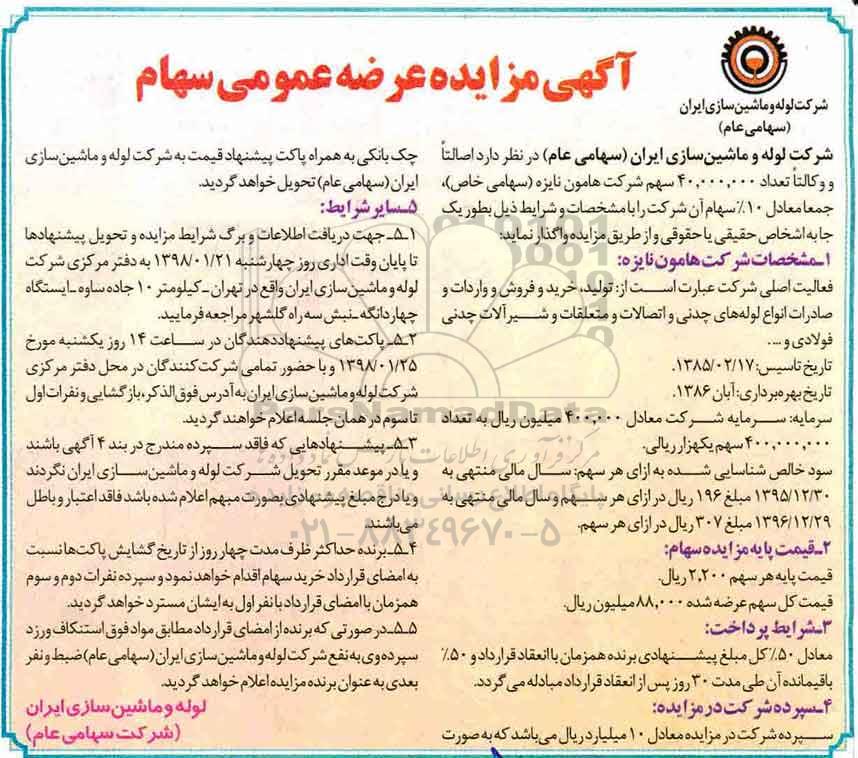 آگهی مزایده عرضه عمومی سهام
شرکت لوله و ماشین سازی ایران
(سهامی عام)
شرکت لوله و ماشین‌سازی ایران (سهامی عام) در نظر دارد اصالتاً
و وکالتاً تعداد ۴۰,۰۰۰,۰۰۰ سهم شرکت هامون نایزه (سهامی خاص)،
جمعا معادل ۱۰٪ سهام آن شرکت را با مشخصات و شرایط ذیل بطور یک
جا به اشخاص حقیقی یا حقوقی و از طریق مزایده واگذار نماید:
۱ـ مشخصات شرکت هامون نایزه:
فعالیت اصلی شرکت عبارت است از: تولید، خرید و فروش و واردات و
صادرات انواع لوله‌های چدنی و اتصالات و متعلقات و شیرآلات چدنی
فولادی و ....
تاریخ تاسیس: ۱۳۸۵/۰۲/۱۷.
تاریخ بهره‌برداری: آبان ۱۳۸۶.
سرمایه: سرمایه شرکت معادل ۴۰۰,۰۰۰ میلیون ریال به تعداد
۴۰۰,۰۰۰,۰۰۰ سهم یکهزار ریالی.
سود خالص شناسایی شده به ازای هر سهم: سال مالی منتهی به
۱۳۹۵/۱۲/۳۰ مبلغ ۱۹۶ ریال در ازای هر سهم و سال مالی منتهی به
۱۳۹۶/۱۲/۲۹ مبلغ ۳۰۷ ریال در ازای هر سهم.
۲ـ قیمت پایه مزایده سهام:
قیمت پایه هر سهم ۲,۲۰۰ ریال.
قیمت کل سهم عرضه شده ۸۸,۰۰۰ میلیون ریال.
۳ـ شرایط پرداخت:
معادل ۵۰٪ کل مبلغ پیشنهادی برنده همزمان با انعقاد قرارداد و ۵۰٪
باقیمانده آن طی مدت ۳۰ روز پس از انعقاد قرارداد مبادله می گردد.
۴ـ سپرده شرکت در مزایده:
سپرده شرکت در مزایده معادل ۱۰ میلیارد ریال می‌باشد که به صورت
چک بانکی به همراه پاکت پیشنهاد قیمت به شرکت لوله و ماشین‌سازی
ایران (سهامی عام) تحویل خواهد گردید.
۵ـ سایر شرایط:
۵ـ۱ـ جهت دریافت اطلاعات و برگ شرایط مزایده و تحویل پیشنهادها
تا پایان وقت اداری روز چهارشنبه ۱۳۹۸/۰۱/۲۱ به دفتر مرکزی شرکت
لوله و ماشین‌سازی ایران واقع در تهران ـ کیلومتر ۱۰ جاده ساوه ـ ایستگاه
چهاردانگه ـ نبش سه راه گلشهر مراجعه فرمایید.
۵ـ۲ـ پاکت‌های پیشنهاددهندگان در ساعت ۱۴ روز یکشنبه مورخ
۱۳۹۸/۰۱/۲۵ و با حضور تمامی شرکت‌کنندگان در محل دفتر مرکزی
شرکت لوله و ماشین‌سازی ایران به آدرس فوق‌الذکر، بازگشایی و نفرات اول
تا سوم در همان جلسه اعلام خواهند گردید.
۵ـ۳ـ پیشنهادهایی که فاقد سپرده مندرج در بند ۴ آگهی باشند
و یا در موعد مقرر تحویل شرکت لوله و ماشین‌سازی ایران نگردند
و یا درج مبلغ پیشنهادی بصورت مبهم اعلام شده باشد فاقد اعتبار و باطل
می‌باشند.
۵ـ۴ـ برنده حداکثر ظرف مدت چهار روز از تاریخ گشایش پاکت‌ها نسبت
به امضای قرارداد خرید سهام اقدام خواهد نمود و سپرده نفرات دوم و سوم
همزمان با امضای قرارداد با نفر اول به ایشان مسترد خواهد گردید.
۵ـ۵ـ در صورتی که برنده از امضای قرارداد مطابق مواد فوق استنکاف ورزد
سپرده وی به نفع شرکت لوله و ماشین‌سازی ایران (سهامی عام) ضبط و نفر
بعدی به عنوان برنده مزایده اعلام خواهد گردید.
لوله و ماشین سازی ایران
(شرکت سهامی عام)
ParsNamadData
۰۲۱-۸۸۳۴۹۶۷۰-۵